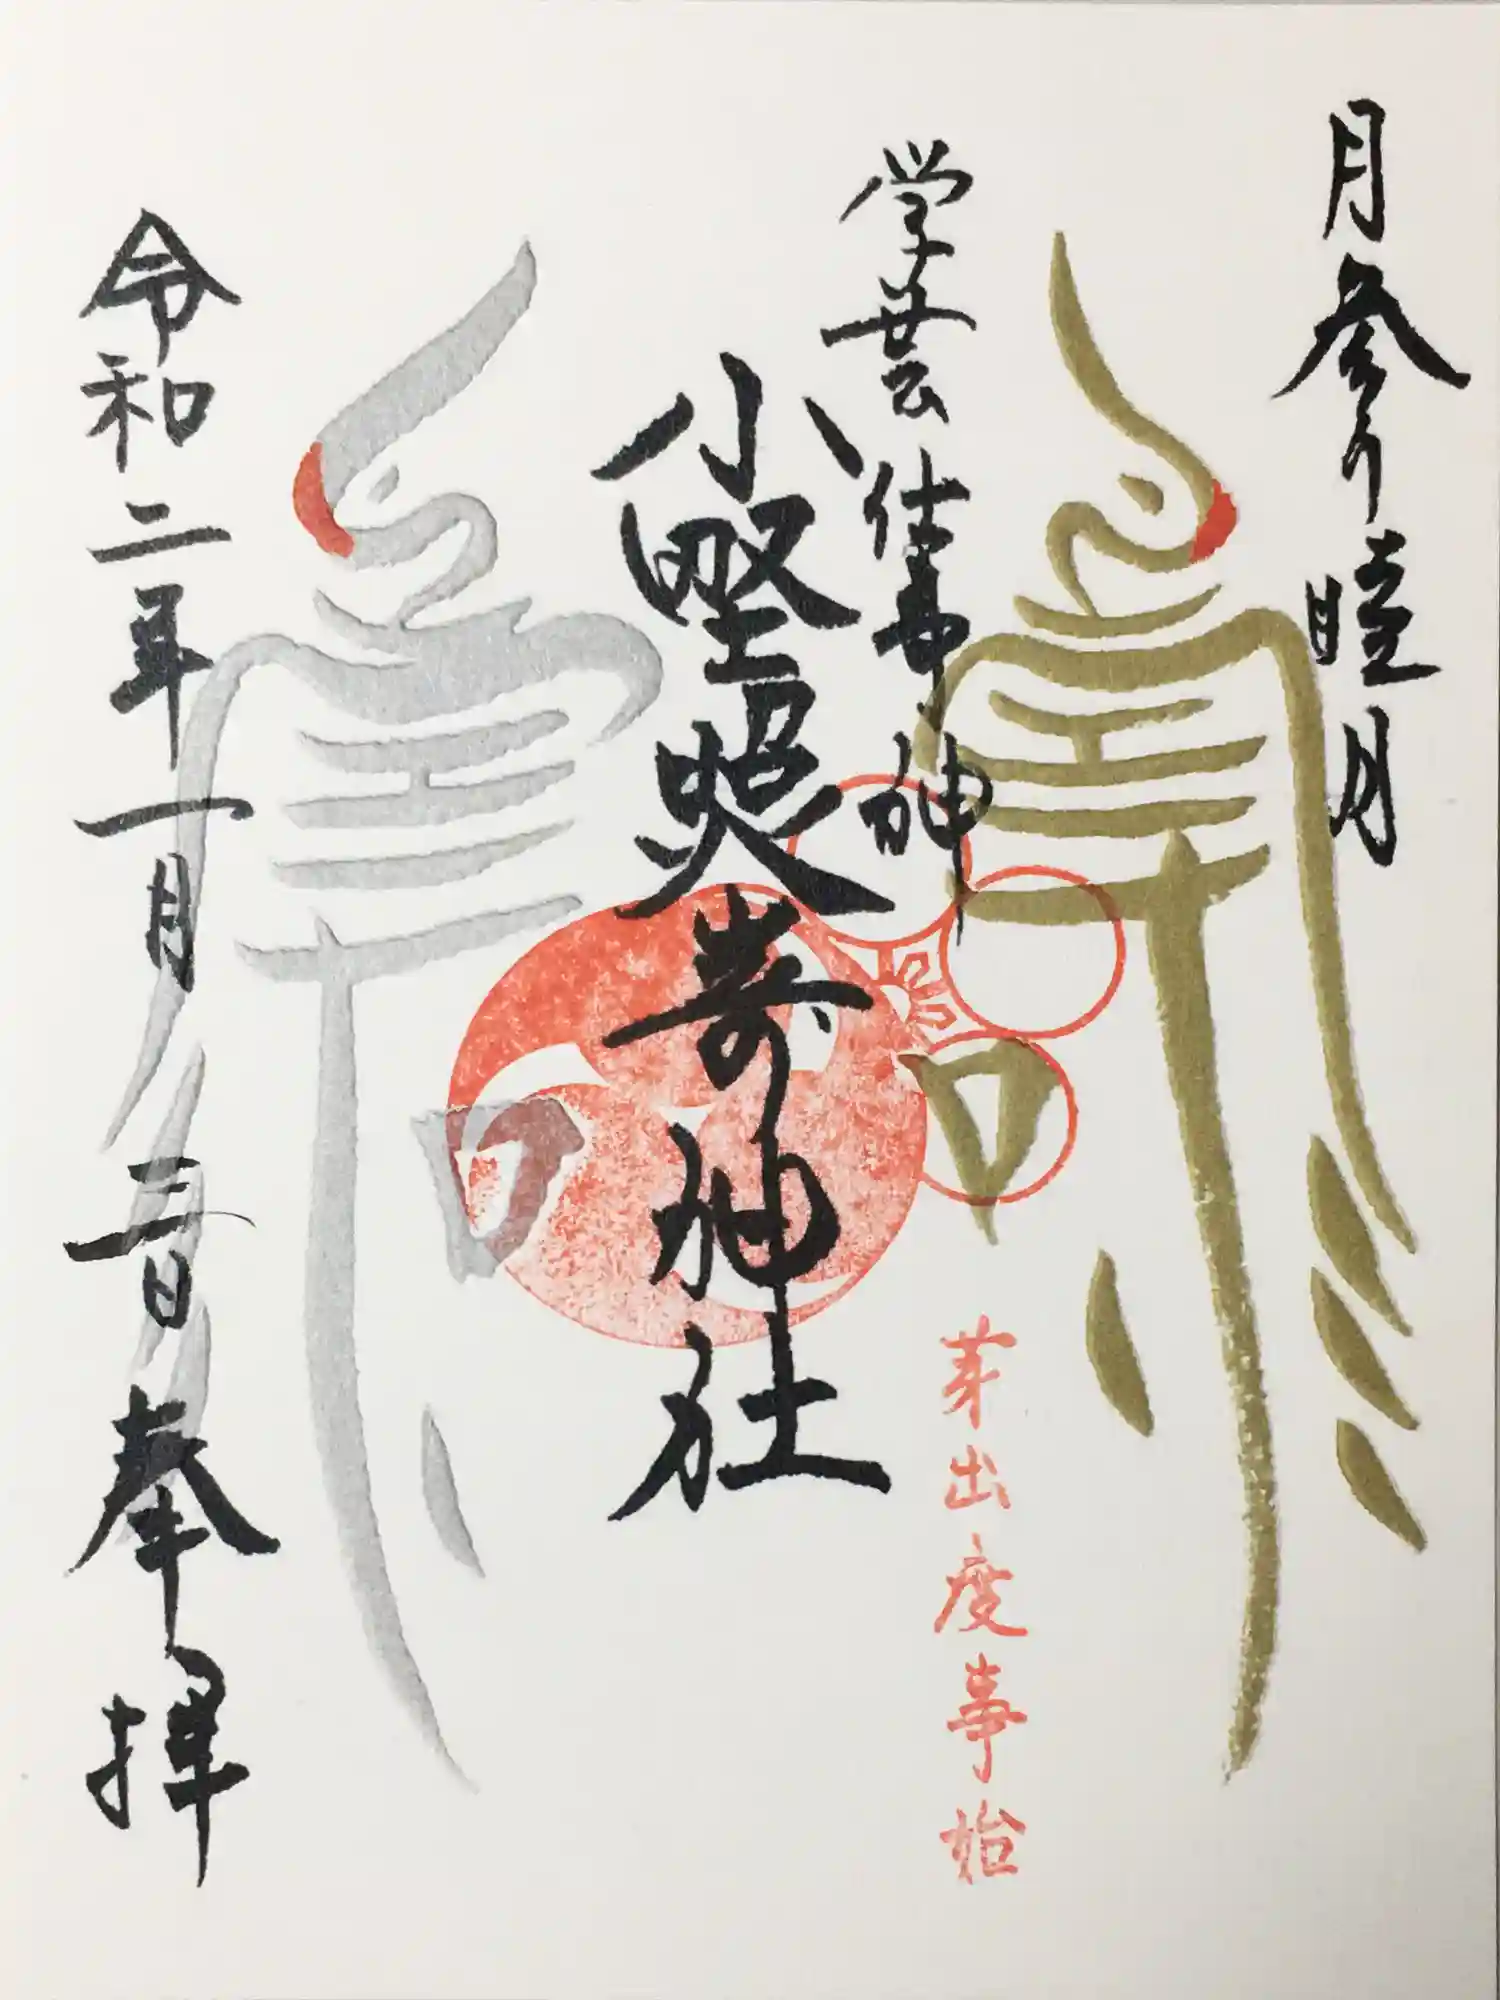 月参り睦月
学芸仕事神
小野照崎神社
芽出度事始
令和二年一月三日奉拝